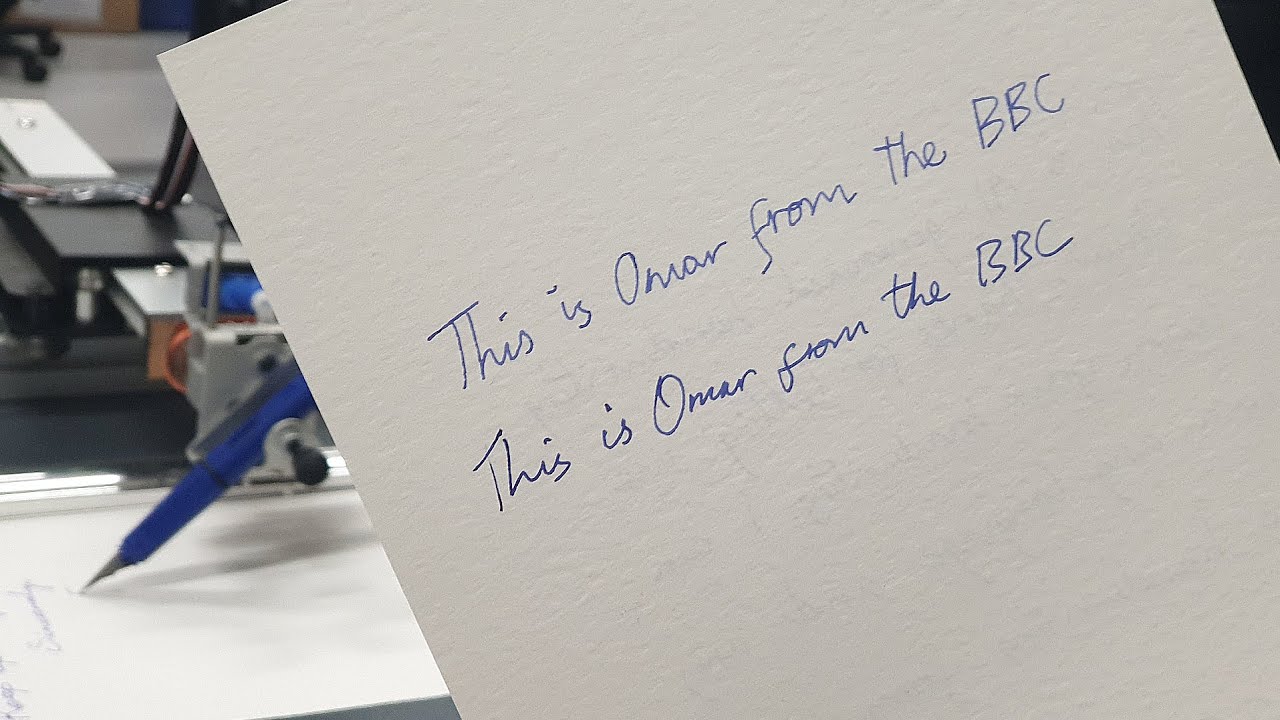 This is Omar from the BBC
This is Omar from the BBC